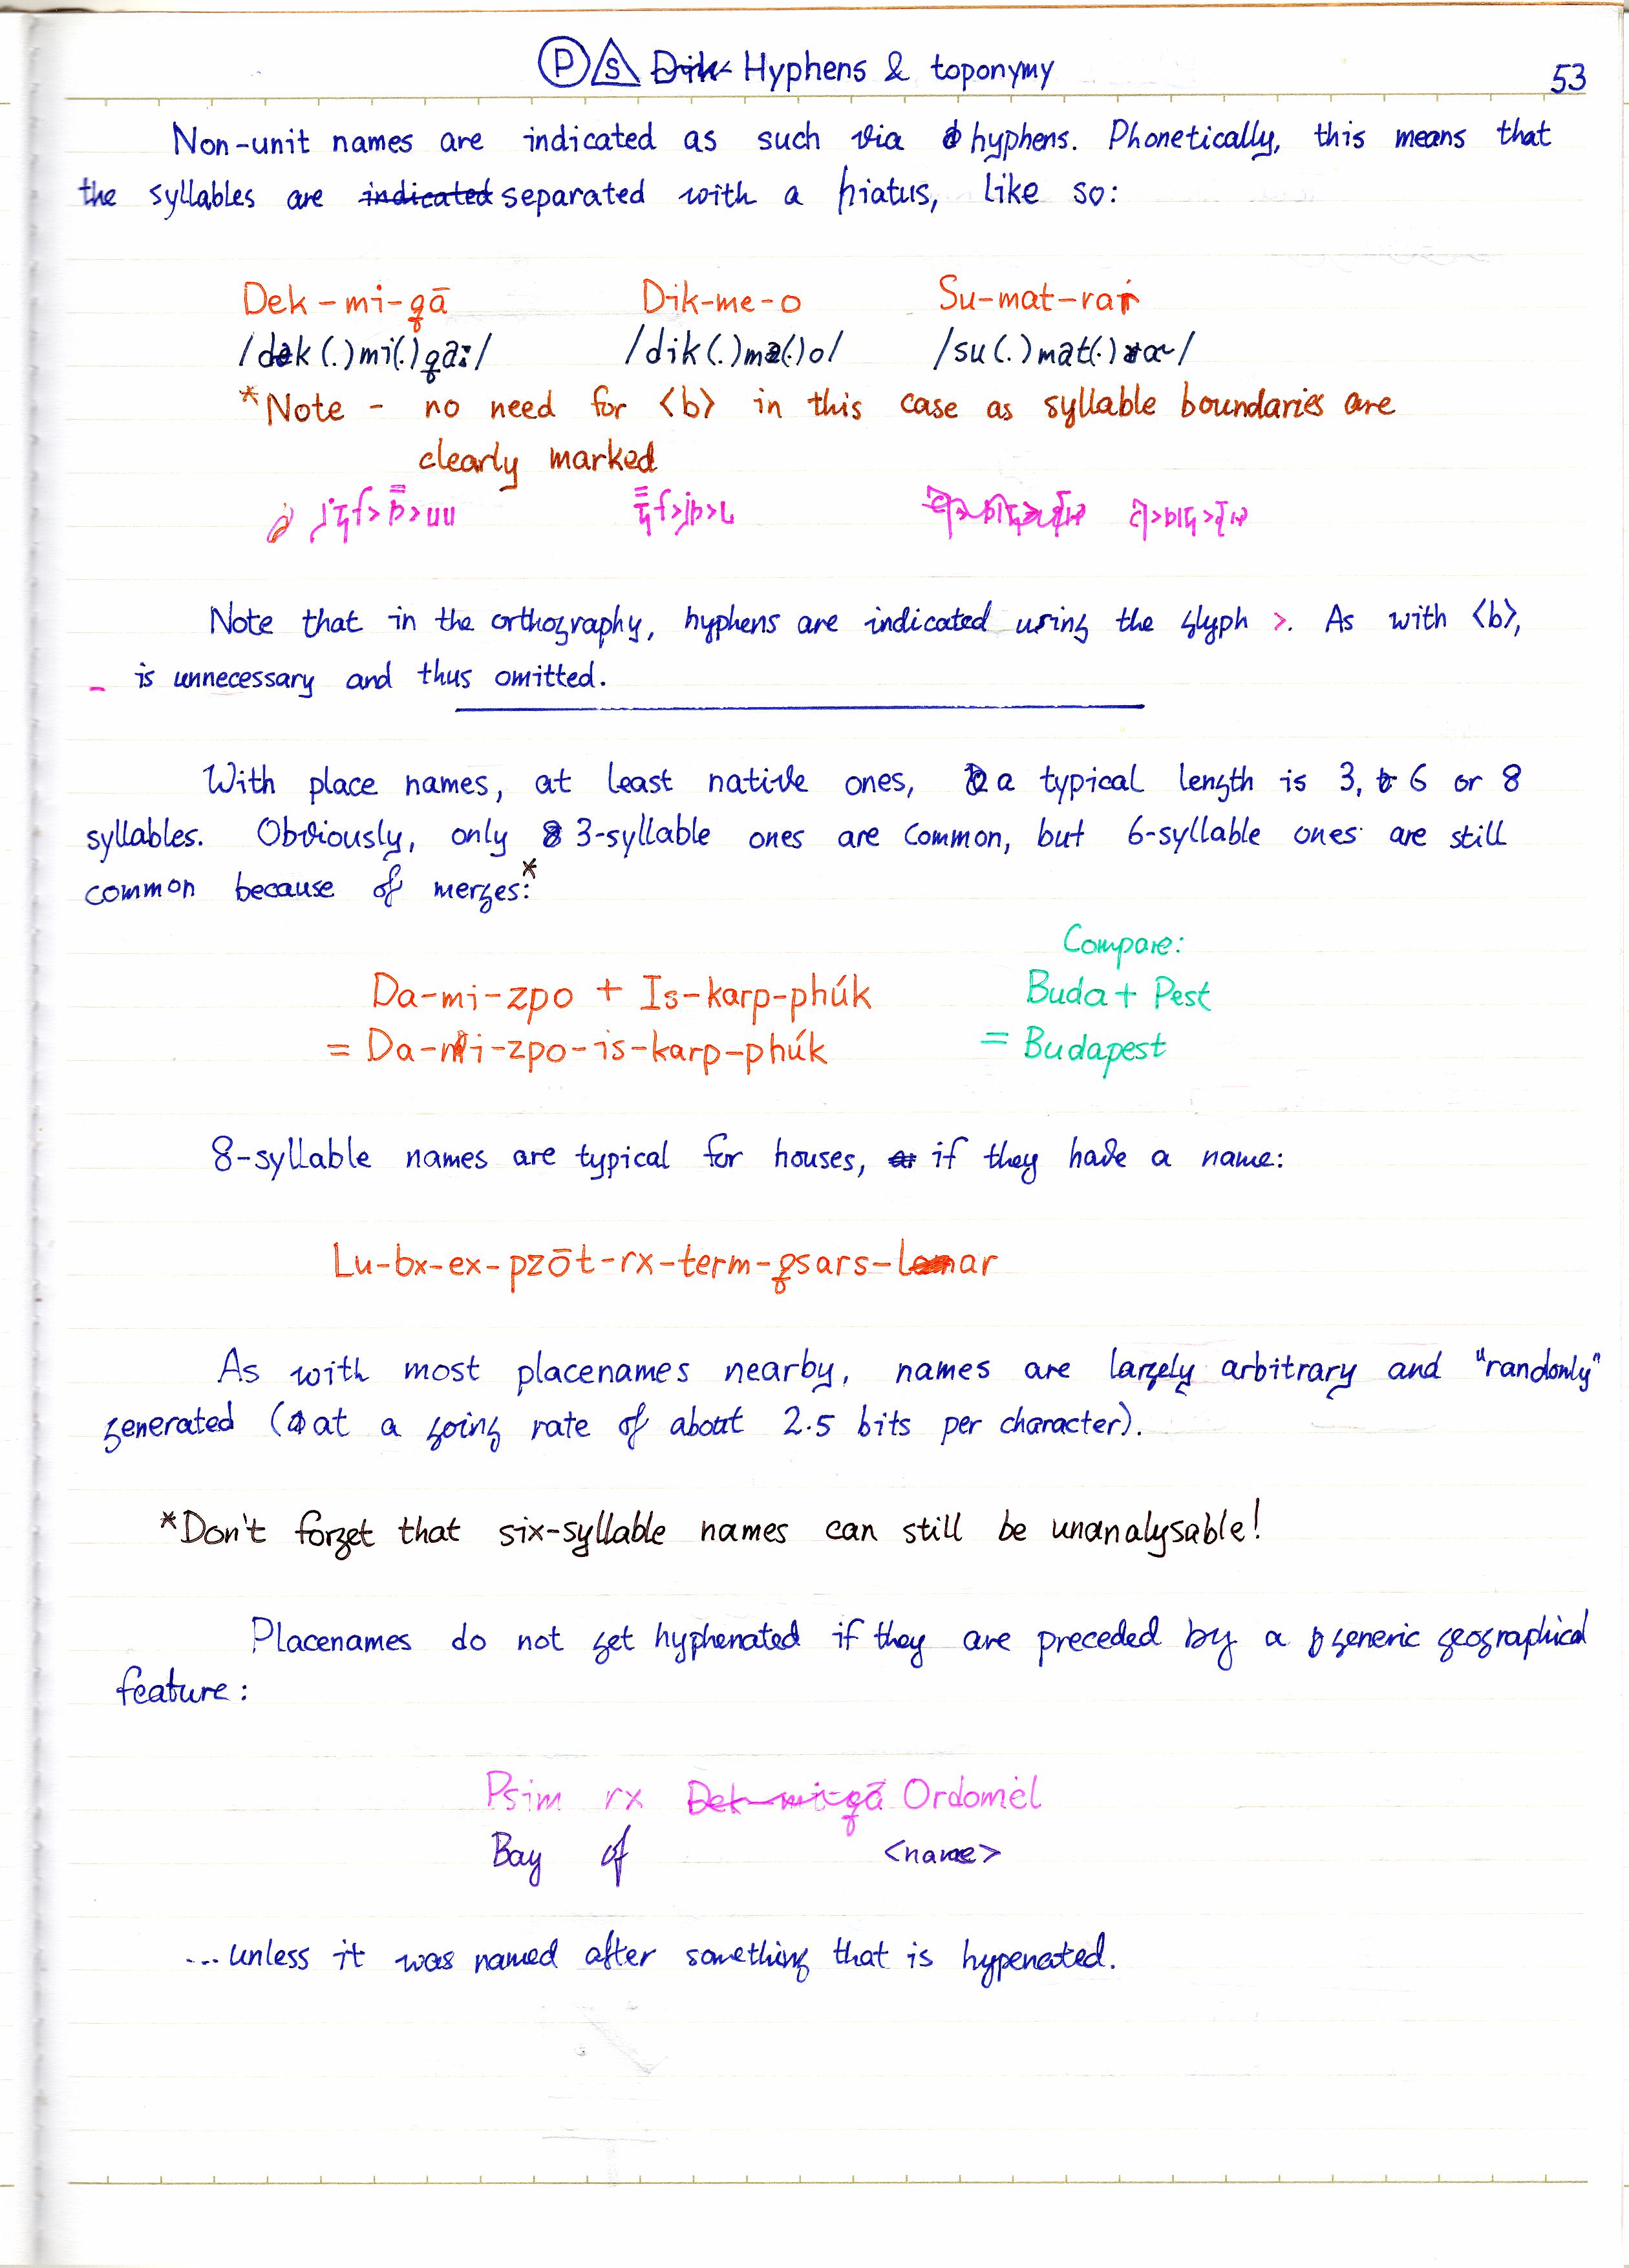 Ⓟ Hyphens & toponymy 53
Non-unit names are indicated as such via hyphens. Phonetically, this means that
the syllables are indicated separated with a hiatus, like so:
Dek-mi-qā Dik-me-o Su-mat-rar
/dək(.)mi(.)qa:/ /dik(.)mə(.)o/
*Note - no need for <b> in this case as syllable boundaries are
clearly marked
Note that in the orthography, hyphens are indicated using the glyph >. As with <b>,
- is unnecessary and thus omitted.
With place names, at least native ones, a typical length is 3, 6 or 8
syllables. Obviously, only 3-syllable ones are common, but 6-syllable ones are still
common because of merges:*
Compare:
Da-mi-zpo + Is-karp-phúk Buda + Pest
= Da-mi-zpo-is-karp-phúk = Budapest
8-syllable names are typical for houses, if they have a name:
Lu-bx-ex-pzōt-rx-term-qsars-lar
As with most placenames nearby, names are largely arbitrary and "randomly"
generated (at a going rate of about 2.5 bits per character).
*Don't forget that six-syllable names can still be unanalysable!
Placenames do not get hyphenated if they are preceded by a generic geographical
feature:
Psim rx Dek-mi-qā Ordomėl
Bay of <name>
...unless it was named after something that is hypenated.